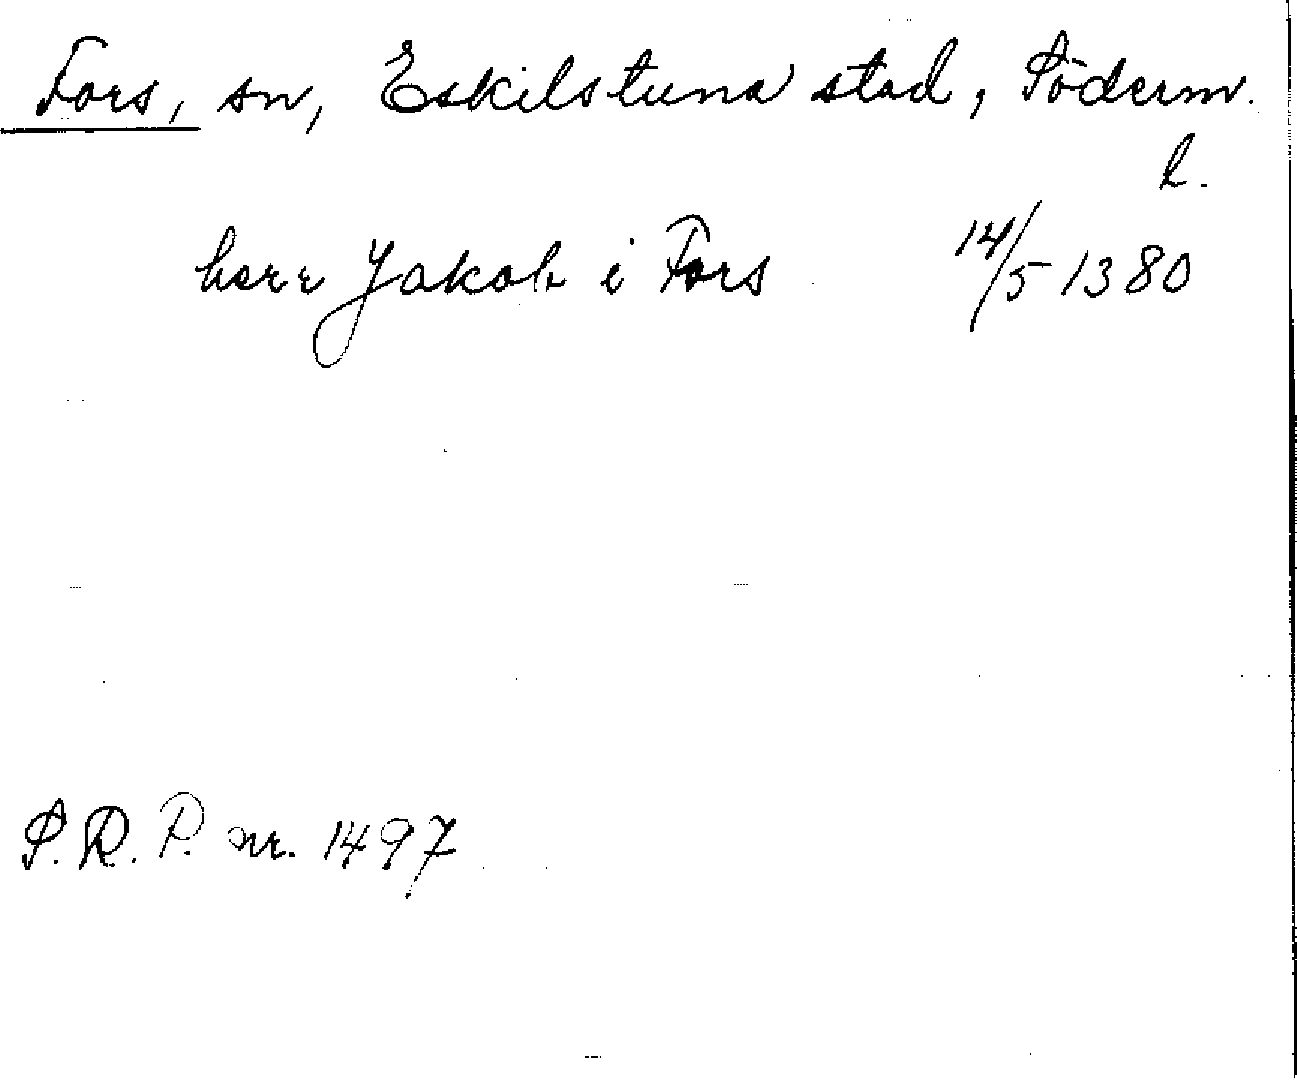 Fors, sn, Eskilstuna stad, Söderm.
l.
herr Jakob i Fors 14/5 1380
S.R.P. nr. 1497